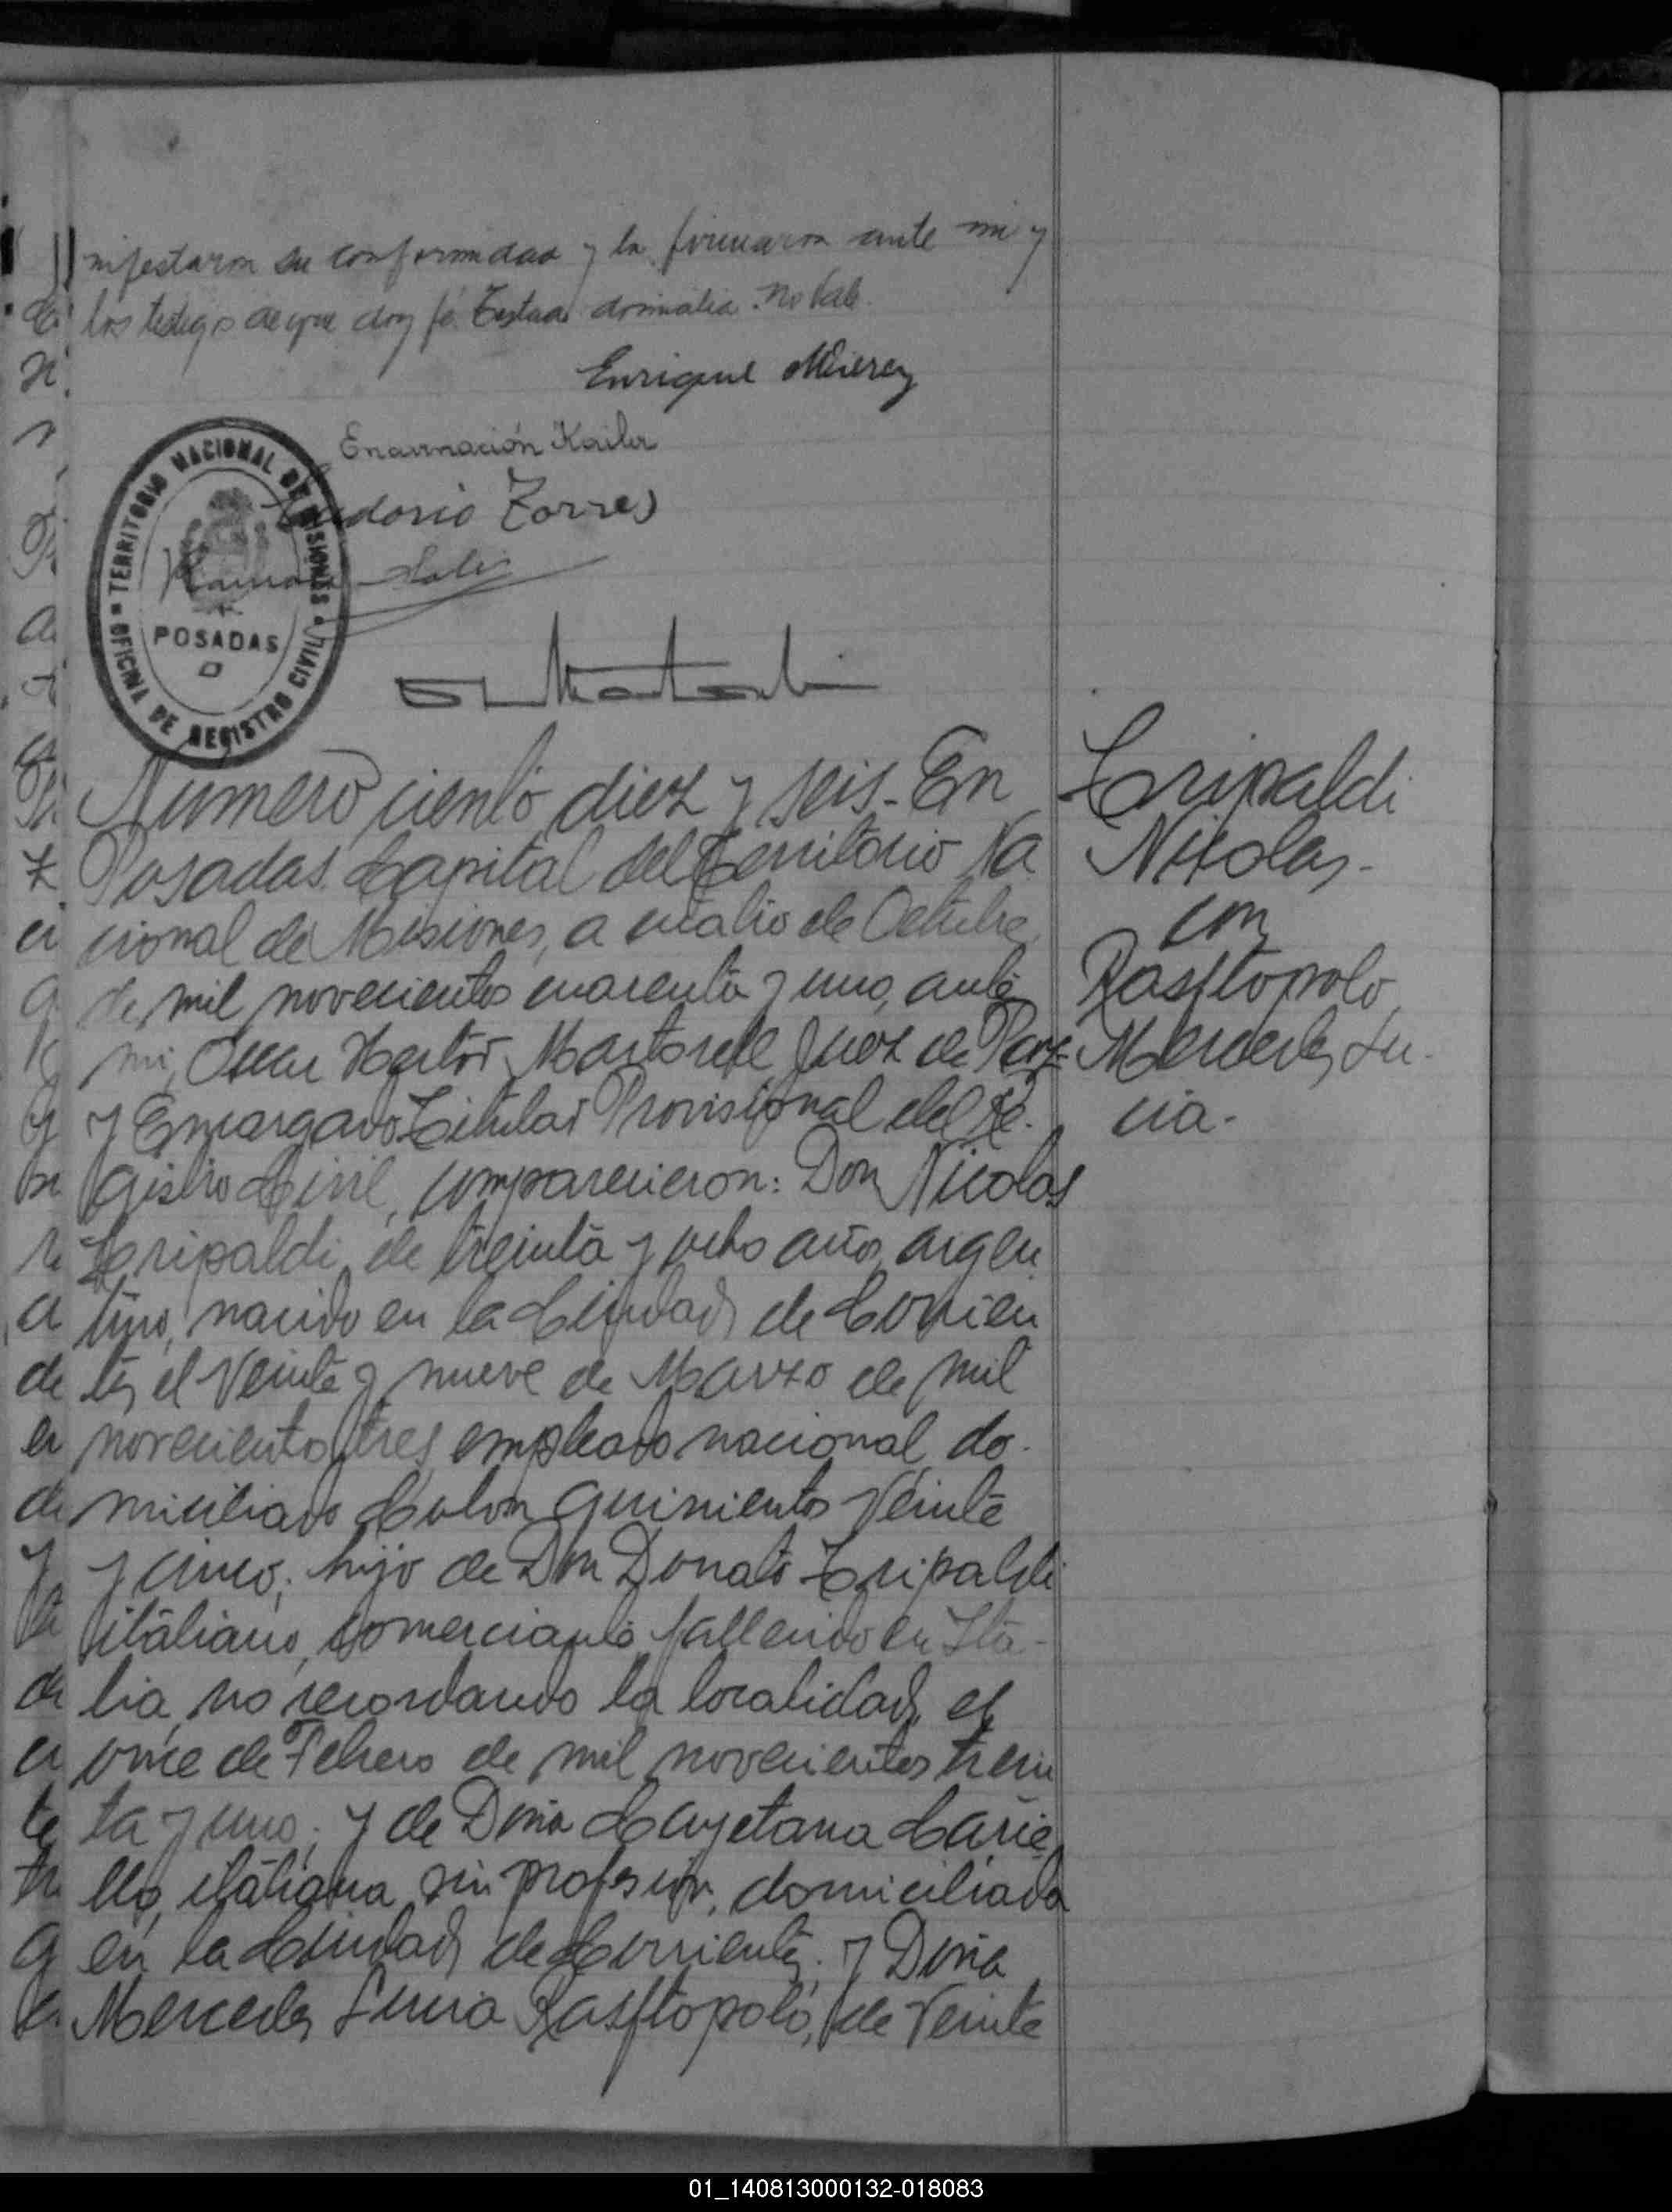 nifestaron su conformidad y la firmaron ante mi y
los testigos de que doy fé. Testado domicilia. No vale.
Enrique
Encarnación Kailer
Torres
Ramon Solis
TERRITORIO NACIONAL DE MISIONES
OFICINA DE REGISTRO CIVIL
POSADAS
Numero ciento diez y seis. En
Posadas Capital del Territorio Na
cional de Misiones, a cuatro de Octubre
de mil novecientos cuarenta y uno, ante
mi, Oscar Hector Martorell Juez de Paz
y Encargado Titular Provisional del Re-
gistro Civil, comparecieron: Don Nicolas
Tripaldi, de treinta y ocho años, argen
tino, nacido en la Ciudad de Corrien
tes el Veinte y nueve de Marzo de mil
novecientos tres, empleado nacional, do-
miciliado Colon quinientos Veinte
y cinco; hijo de Don Donato Tripaldi
italiano, comerciante fallecido en Ita-
lia, no recordando la localidad, el
once de Febrero de mil novecientos trein
ta y uno; y de Doña Cayetana
italiana, sin profesion, domiciliada
en la Ciudad de Corrientes; y Doña
Mercedes Lucia Rasftopolo, de Veinte
Tripaldi
Nicolas-
con
Rasftopolo
Mercedes Lu-
cia-
01_140813000132-018083